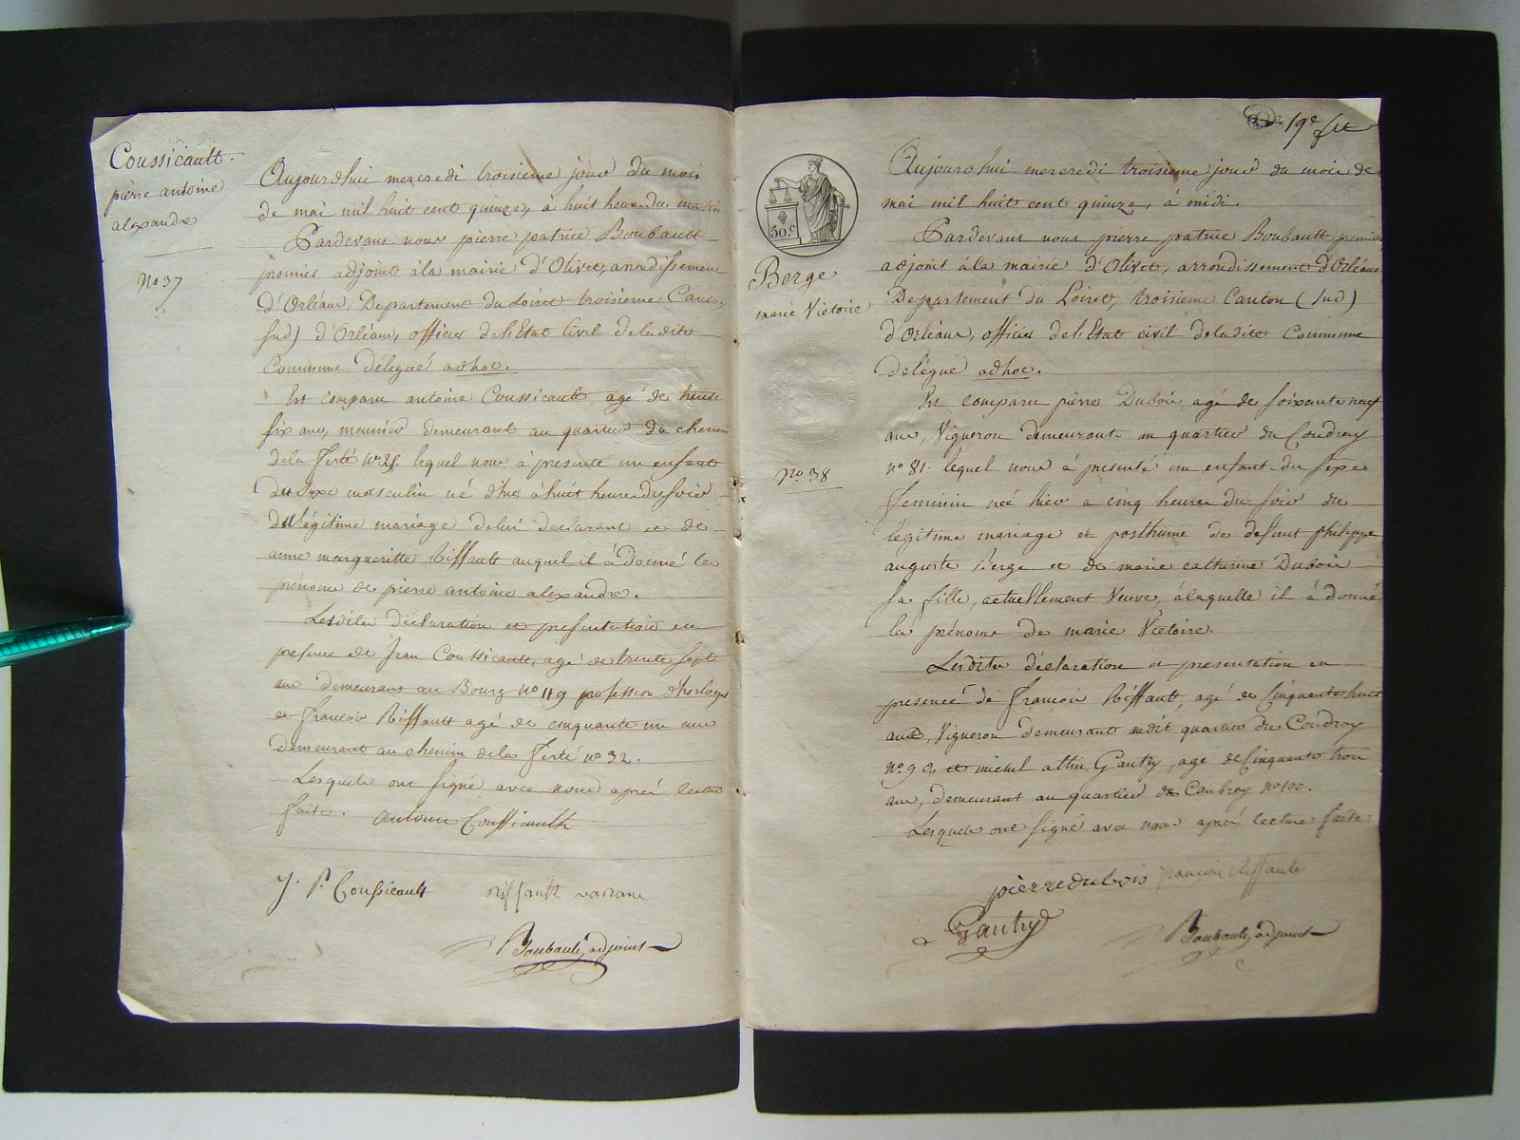 Coussicault.
pierre antoine
alexandre
No 37
Aujourdhui mercredi troisieme jour du mois
de mai mil huit cent quinze, à huit heures du matin
Pardevant nous pierre patrice Boubault
premier adjoint à la mairie d'Olivet, arrondissement
d'Orléans, Departement du Loiret troisieme Canton
sud) d'Orléans, officier de l'Etat Civil de ladite
Commune délégué adhoc.
Est comparu antoine Coussicault agé de trente
six ans, meunier demeurant au quartier du chemin
de la Ferté no 25. lequel nous à presenté un enfant
du Sexe masculin né hier à huit heures du soir
du légitime mariage de lui declarant et de
anne margueritte Riffault auquel il à donné les
prénoms de pierre antoine alexandre.
Lesdites déclaration et presentation en
presence de Jean Coussicault, agé de trente sept
ans demeurant au Bourg no 119 profession d'horloger
et francois Riffault agé de cinquante un ans
demeurant au chemin de la Ferté no 32.
Lesquels ont signé avec nous après lecture
faite. antoine Coussicault
J. P. Coussicault riffault
Boubault, adjoint
19e fet
50 c
Berge
marie Victoire
No. 38
Aujourdhui mercredi troisieme jour du mois de
mai mil huit cent quinze, à midi.
Pardevant nous pierre patrice Boubault premier
adjoint à la mairie d'Olivet, arrondissement d'Orléans
Departement du Loiret, troisieme Canton (sud)
d'Orléans, officier de l'Etat civil de ladite Commune
delégué adhoc.
Est comparu pierre Dubois agé de soixante neuf
ans, Vigneron demeurant au quartier du Coudray
no 81. lequel nous à presenté un enfant du sexe
feminin née hier a cinq heures du soir du
legitime mariage et posthume de defunt philippe
auguste Berge et de marie catherine Dubois
sa fille, actuellement Veuve, à laquelle il à donné
les prénoms de marie Victoire.
Lesdites déclaration et presentation en
presence de francois Riffault, agé de Cinquante huit
ans, Vigneron demeurant sudit quartier du Coudray
no 90, et michel Gautry, agé de Cinquante trois
ans, demeurant au quartier de Coubroy no 100.
Lesquels ont signé avec nous après lecture faite.
pierre dubois francois Riffault
Gautry
Boubault, adjoint